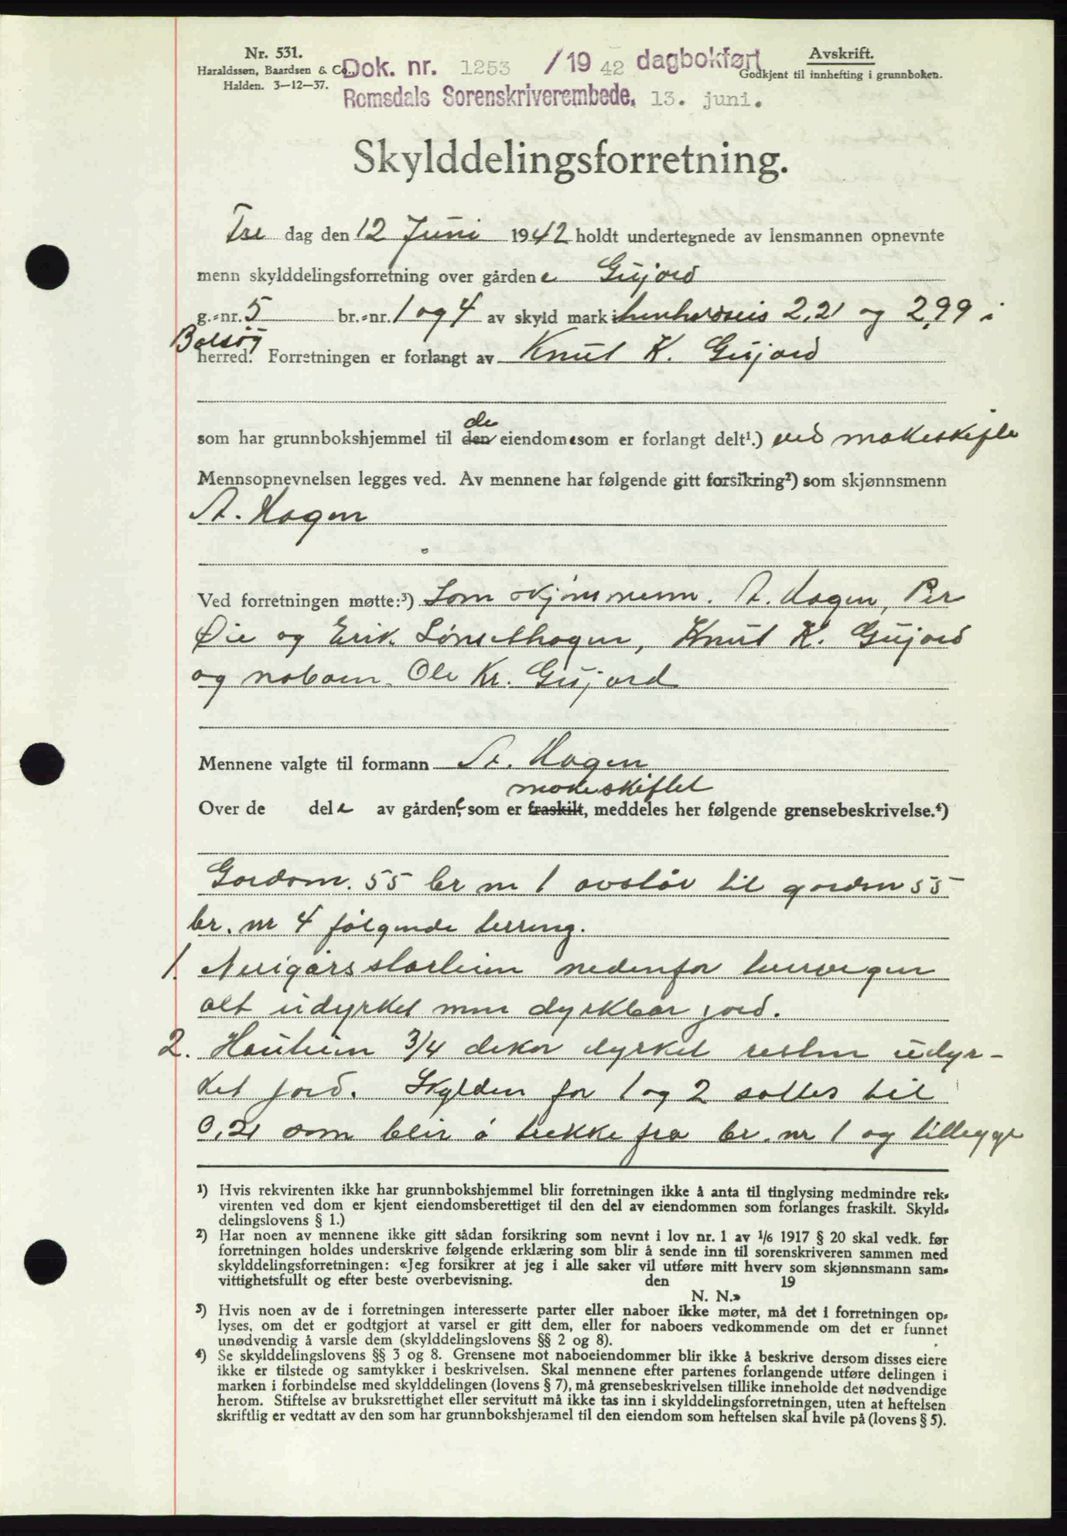 Nr. 531.
Haraldssen, Baardsen & Co.
Halden. 3—12—37.
Dok. nr. 1253 /19 42 dagbokført
Romsdals Sorenskriverembede, 13. juni.
Avskrift.
Godkjent til innhefting i grunnboken.
Skylddelingsforretning.
Fre dag den 12 Juni 1942 holdt undertegnede av lensmannen opnevnte
menn skylddelingsforretning over gårdene Gujord
g.-nr. 5 br.-nr. 1 og 4 av skyld mark henholdsvis 2,21 og 2,99 i
Bolsøy
herred. Forretningen er forlangt av Knut K. Gujord
de
som har grunnbokshjemmel til den eiendom som er forlangt delt¹.) ved makeskifte
Mennsopnevnelsen legges ved. Av mennene har følgende gitt forsikring²) som skjønnsmenn
A. Hagen
Ved forretningen møtte:³) Som skjønsmenn. A. Hagen, Per
Øie og Erik Sønsethagen, Knut K. Gujord
og naboen Ole Kr. Gujord
Mennene valgte til formann A. Hagen
makeskiftet
Over de dele av gården, som er fraskilt, meddeles her følgende grensebeskrivelse.⁴)
Gardsnr. 55 br nr 1 avstår til garden 55
br. nr 4 følgende terreng.
1. Nerigårsstorteim nedenfor
alt udyrket men dyrkbar jord.
2. Hauteim 3/4 dekar dyrket resten udyr-
ket jord. Skylden for 1 og 2 settes til
0,21 som blir å trekke fra br. nr 1 og tillegge
¹) Hvis rekvirenten ikke har grunnbokshjemmel blir forretningen ikke å anta til tinglysing medmindre rek-
virenten ved dom er kjent eiendomsberettiget til den del av eiendommen som forlanges fraskilt. Skyld-
delingslovens § 1.)
²) Har noen av mennene ikke gitt sådan forsikring som nevnt i lov nr. 1 av 1/6 1917 § 20 skal vedk. før
forretningen holdes underskrive følgende erklæring som blir å sende inn til sorenskriveren sammen med
skylddelingsforretningen: «Jeg forsikrer at jeg i alle saker vil utføre mitt hverv som skjønnsmann sam-
vittighetsfullt og efter beste overbevisning. den 19
N. N.»
³) Hvis noen av de i forretningen interesserte parter eller naboer ikke møter, må det i forretningen op-
lyses, om det er godtgjort at varsel er gitt dem, eller for naboers vedkommende om det er funnet
unødvendig å varsle dem (skylddelingslovens §§ 2 og 8).
⁴) Se skylddelingslovens §§ 3 og 8. Grensene mot naboeiendommer blir ikke å beskrive dersom disses eiere
ikke er tilstede og samtykker i beskrivelsen. Skal mennene efter partenes forlangende utføre delingen i
marken i forbindelse med skylddelingen (lovens § 7), må grensebeskrivelsen tillike inneholde det nødvendige
herom. Stiftelse av bruksrettighet eller servitutt må ikke tas inn i skylddelingsforretningen, uten at heftelsen
skriftlig er vedtatt av den som har grunnbokshjemmel til den eiendom som heftelsen skal hvile på (lovens § 5).